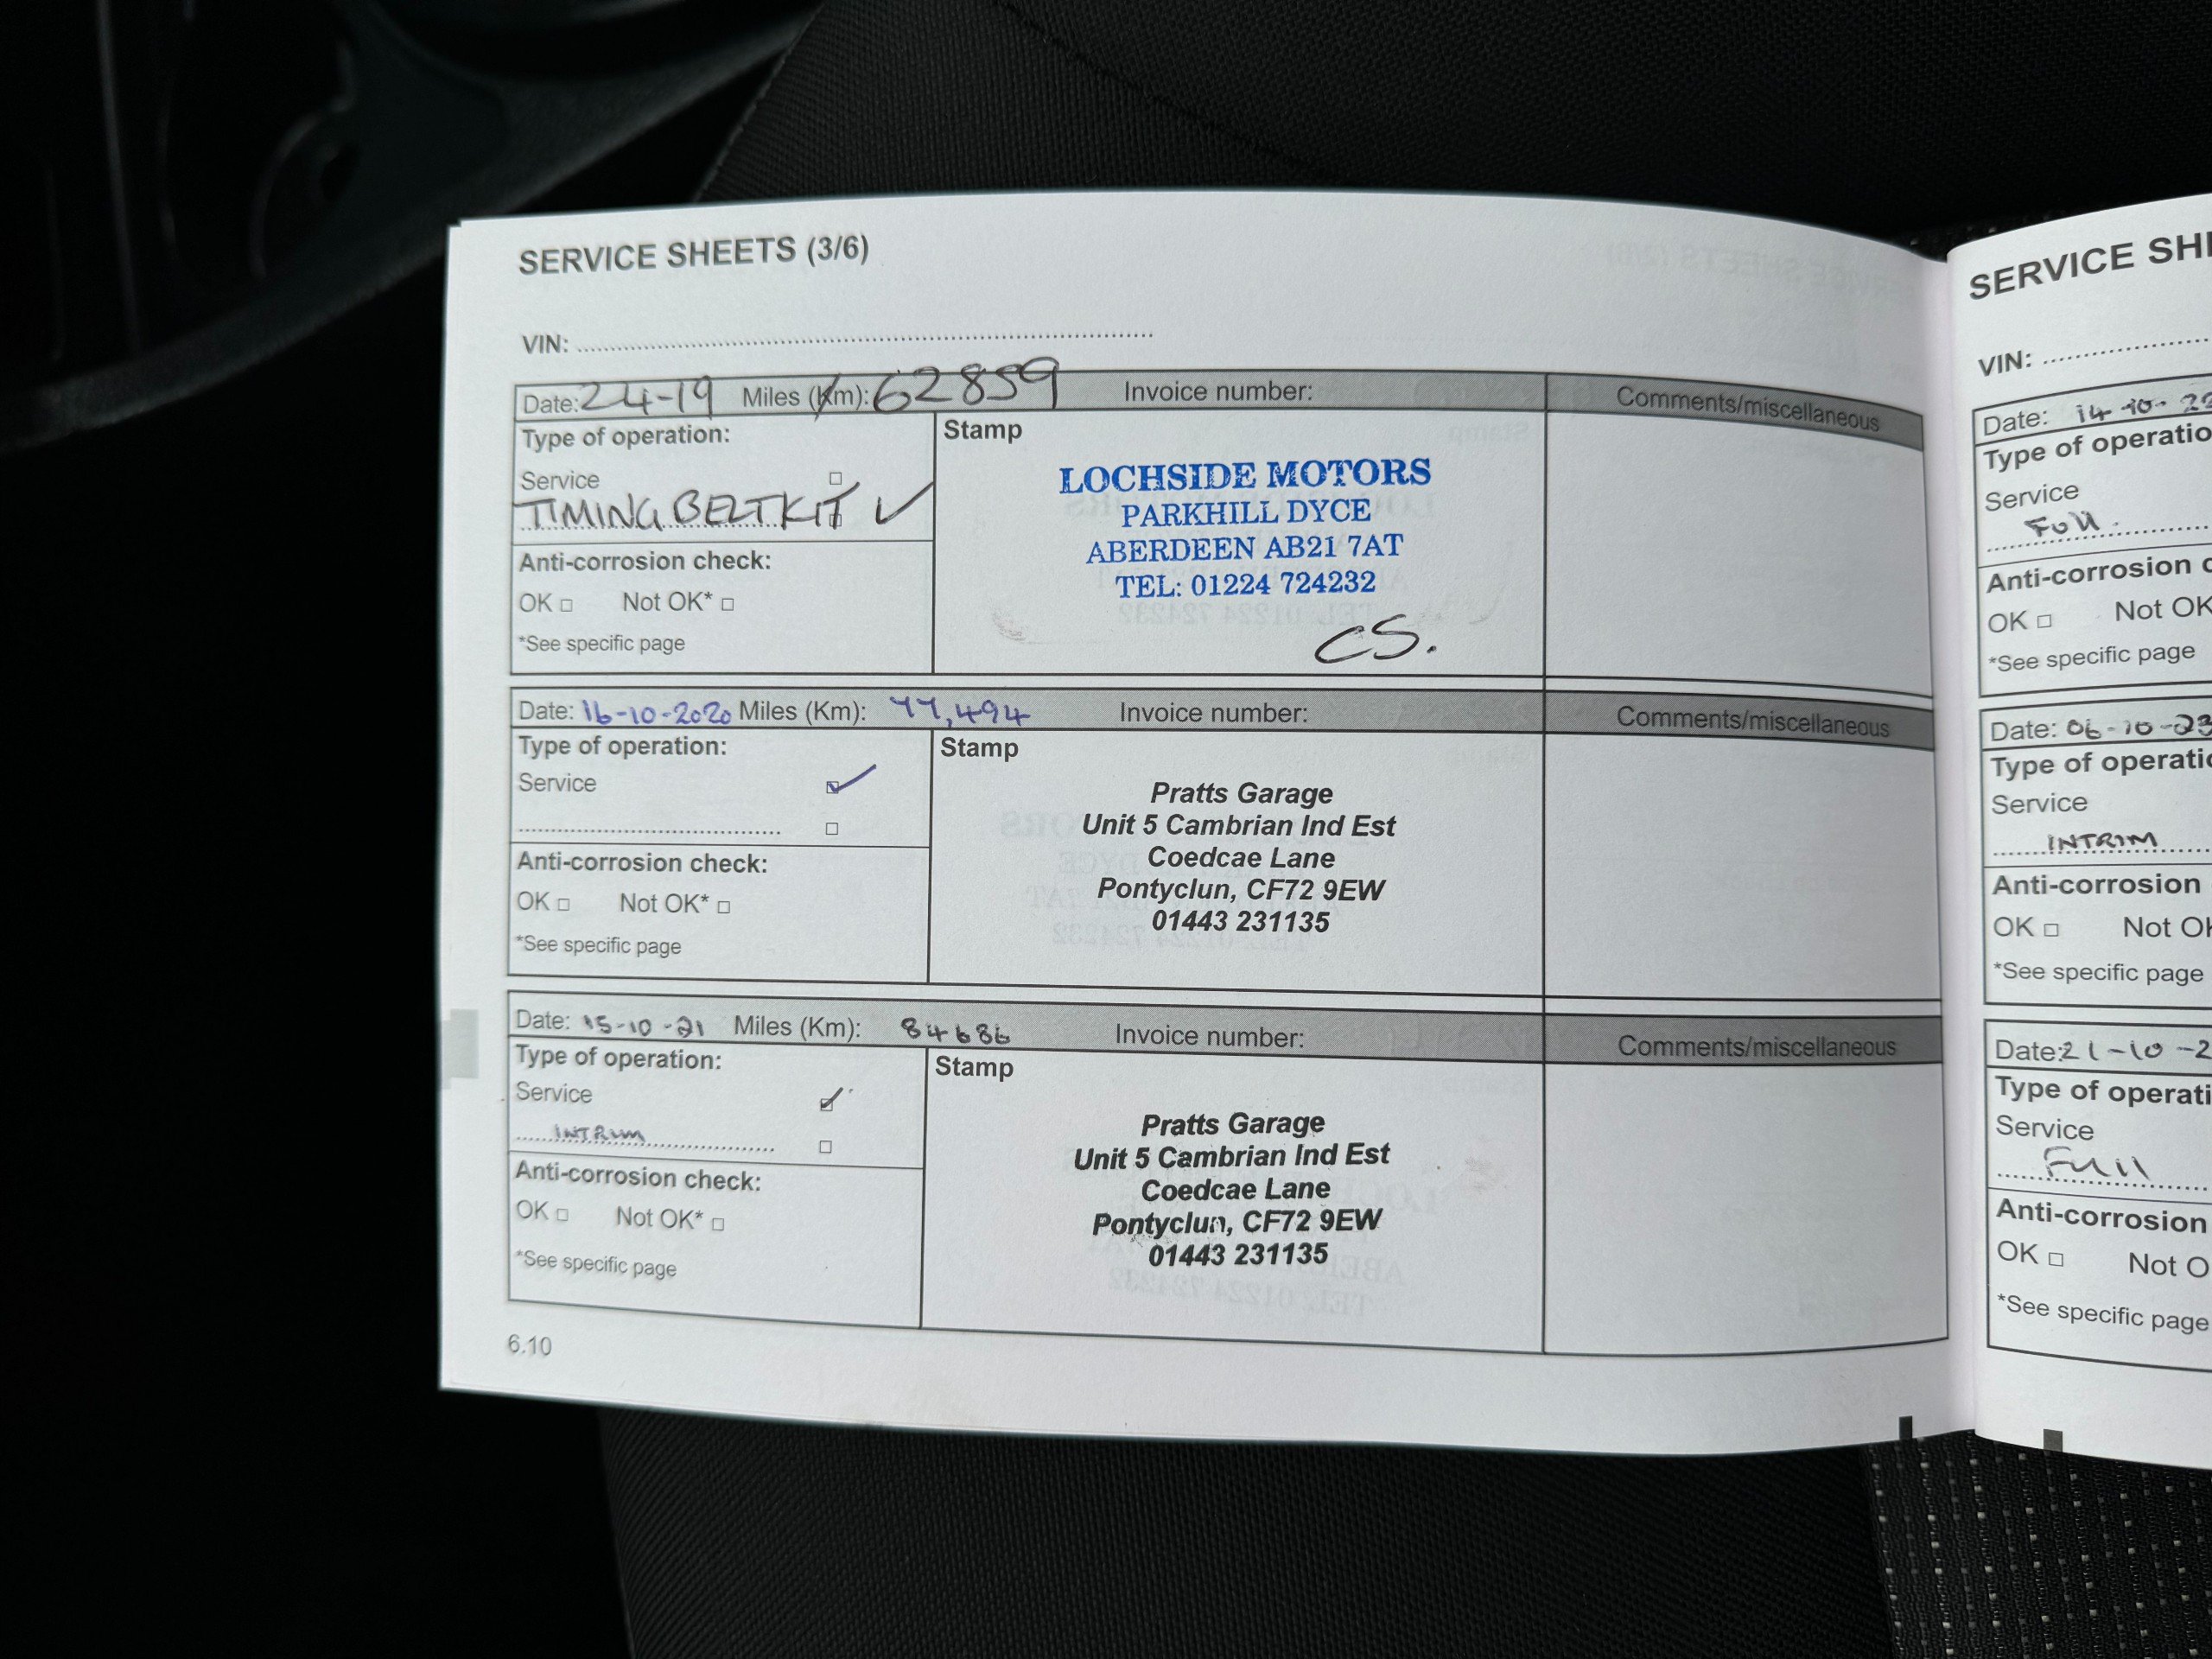 SERVICE SHEETS (3/6)
VIN:
Date: 24-19 Miles (Km): 62859 Invoice number: Comments/miscellaneous
Type of operation:
Stamp
Service
TIMING BELT KIT ✓
LOCHSIDE MOTORS
PARKHILL DYCE
ABERDEEN AB21 7AT
TEL: 01224 724232
CS.
Anti-corrosion check:
OK Not OK*
*See specific page
Date: 16-10-2020 Miles (Km): 77,494 Invoice number: Comments/miscellaneous
Type of operation:
Stamp
Service ✓
Pratts Garage
Unit 5 Cambrian Ind Est
Coedcae Lane
Pontyclun, CF72 9EW
01443 231135
Anti-corrosion check:
OK Not OK*
*See specific page
Date: 15-10-21 Miles (Km): 84686 Invoice number: Comments/miscellaneous
Type of operation:
Stamp
Service ✓
INTRIM
Pratts Garage
Unit 5 Cambrian Ind Est
Coedcae Lane
Pontyclun, CF72 9EW
01443 231135
Anti-corrosion check:
OK Not OK*
*See specific page
6.10
SERVICE SH
VIN:
Date: 14-10-2
Type of operatio
Service
Full
Anti-corrosion c
OK Not OK
*See specific page
Date: 06-10-23
Type of operati
Service
INTRIM
Anti-corrosion
OK Not O
*See specific page
Date: 21-10-2
Type of operati
Service
Full
Anti-corrosion
OK Not O
*See specific page